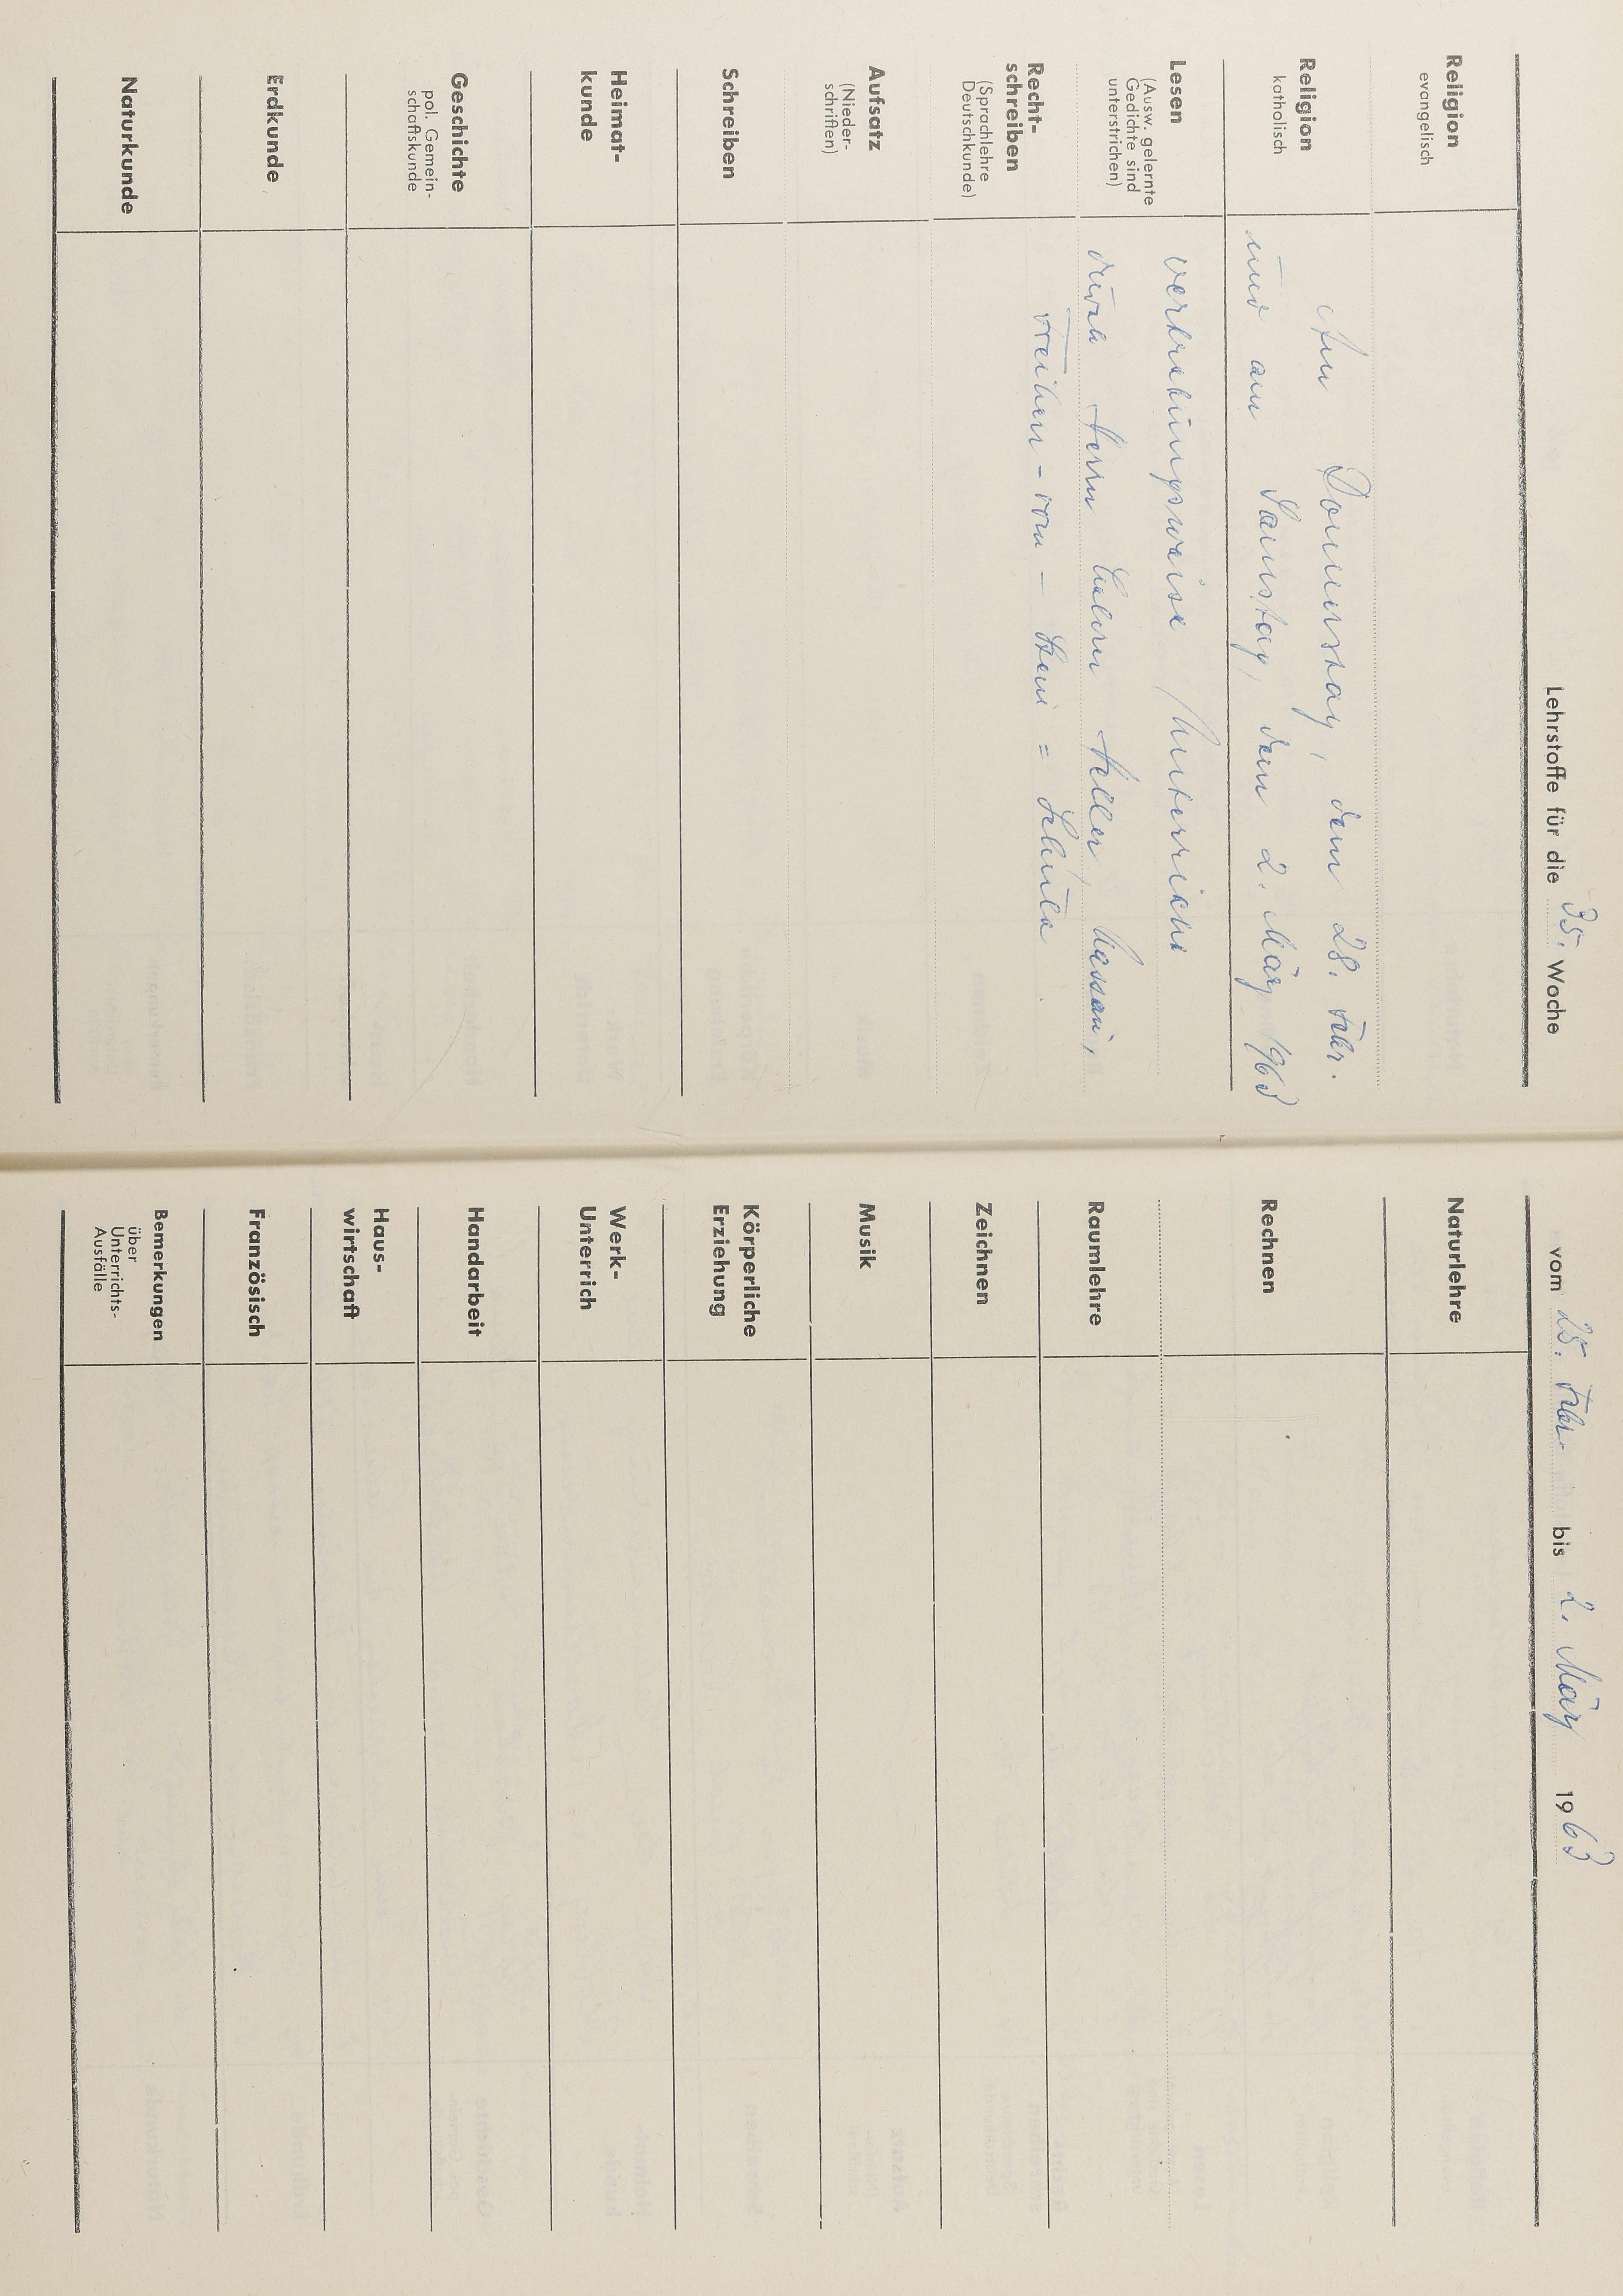 Lehrstoffe für die 35. Woche
Religion
evangelisch
Religion
katholisch
Am Donnerstag, dem 28. Febr.
und am Samstag, dem 2. März 1963
Lesen
(Ausw. gelernte
Gedichte sind
unterstrichen)
vertretungsweise Unterricht
durch Herrn Lehrer Heller, Nassau,
Recht-
schreiben
(Sprachlehre
Deutschkunde)
Freiherr-vom-Stein=Schule
Aufsatz
(Nieder-
schriften)
Schreiben
Heimat-
kunde
Geschichte
pol. Gemein-
schaftskunde
Erdkunde
Naturkunde
vom 25. Febr. bis 2. März 1963
Naturlehre
Rechnen
Raumlehre
Zeichnen
Musik
Körperliche
Erziehung
Werk-
Unterrich
Handarbeit
Haus-
wirtschaft
Französisch
Bemerkungen
über
Unterrichts-
Ausfälle